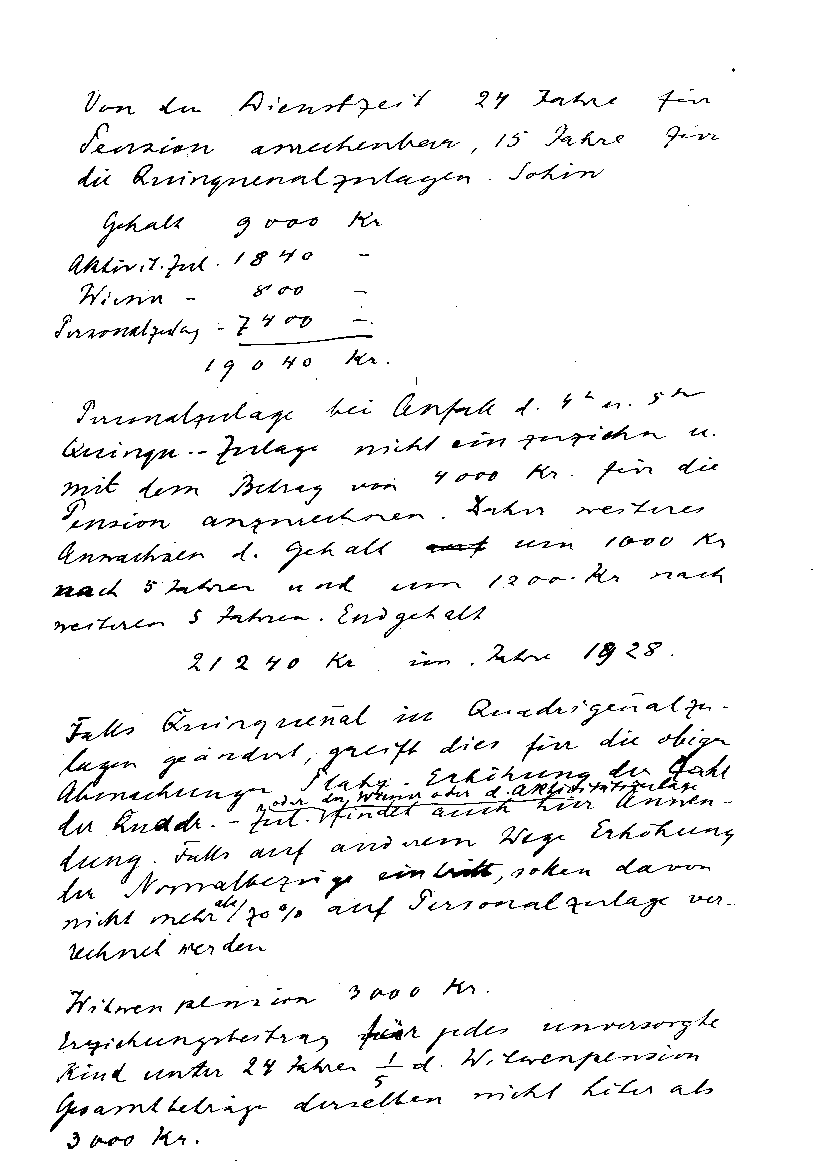 Von der Dienstzeit 24 Jahre für
Pension anrechenbar, 15 Jahre für
die Quinquenalzulagen. Sohin
Gehalt 9000 Kr
Aktivit. Zul. 1840 –
Wiener – 800 –
Personalzulag – 7400 –
19040 Kr.
Personalzulage bei Anfall d. 4ten u. 5ten
Quinqu.-Zulage nicht einzuziehn u.
mit dem Betrag von 4000 Kr. für die
Pension anzurechnen. Daher weiteres
Anwachsen d. Gehalt auf um 1000 Kr
nach 5 Jahren und um 1200 Kr nach
weiteren 5 Jahren. Endgehalt
21240 Kr im Jahre 1928.
Falls Quinquenal in Quadrigenalzu-
lagen geändert, greift dies für die obigen
Abmachungen Platz. Erhöhung der Zahl
oder der Wiener oder d. Aktivitätszulage
der Quadr. – Zul. findet auch hier Anwen-
dung. Falls auf anderem Wege Erhöhung
der Normalbezüge eintritt, sollen davon
nicht mehr als 70% auf Personalzulage ver-
rechnet werden
Witwenpension 3000 Kr.
Erziehungsbeitrag für jedes unversorgte
Kind unter 24 Jahren 1/5 d. Witwenpension
Gesamtbeträge derselben nicht höher als
3000 Kr.